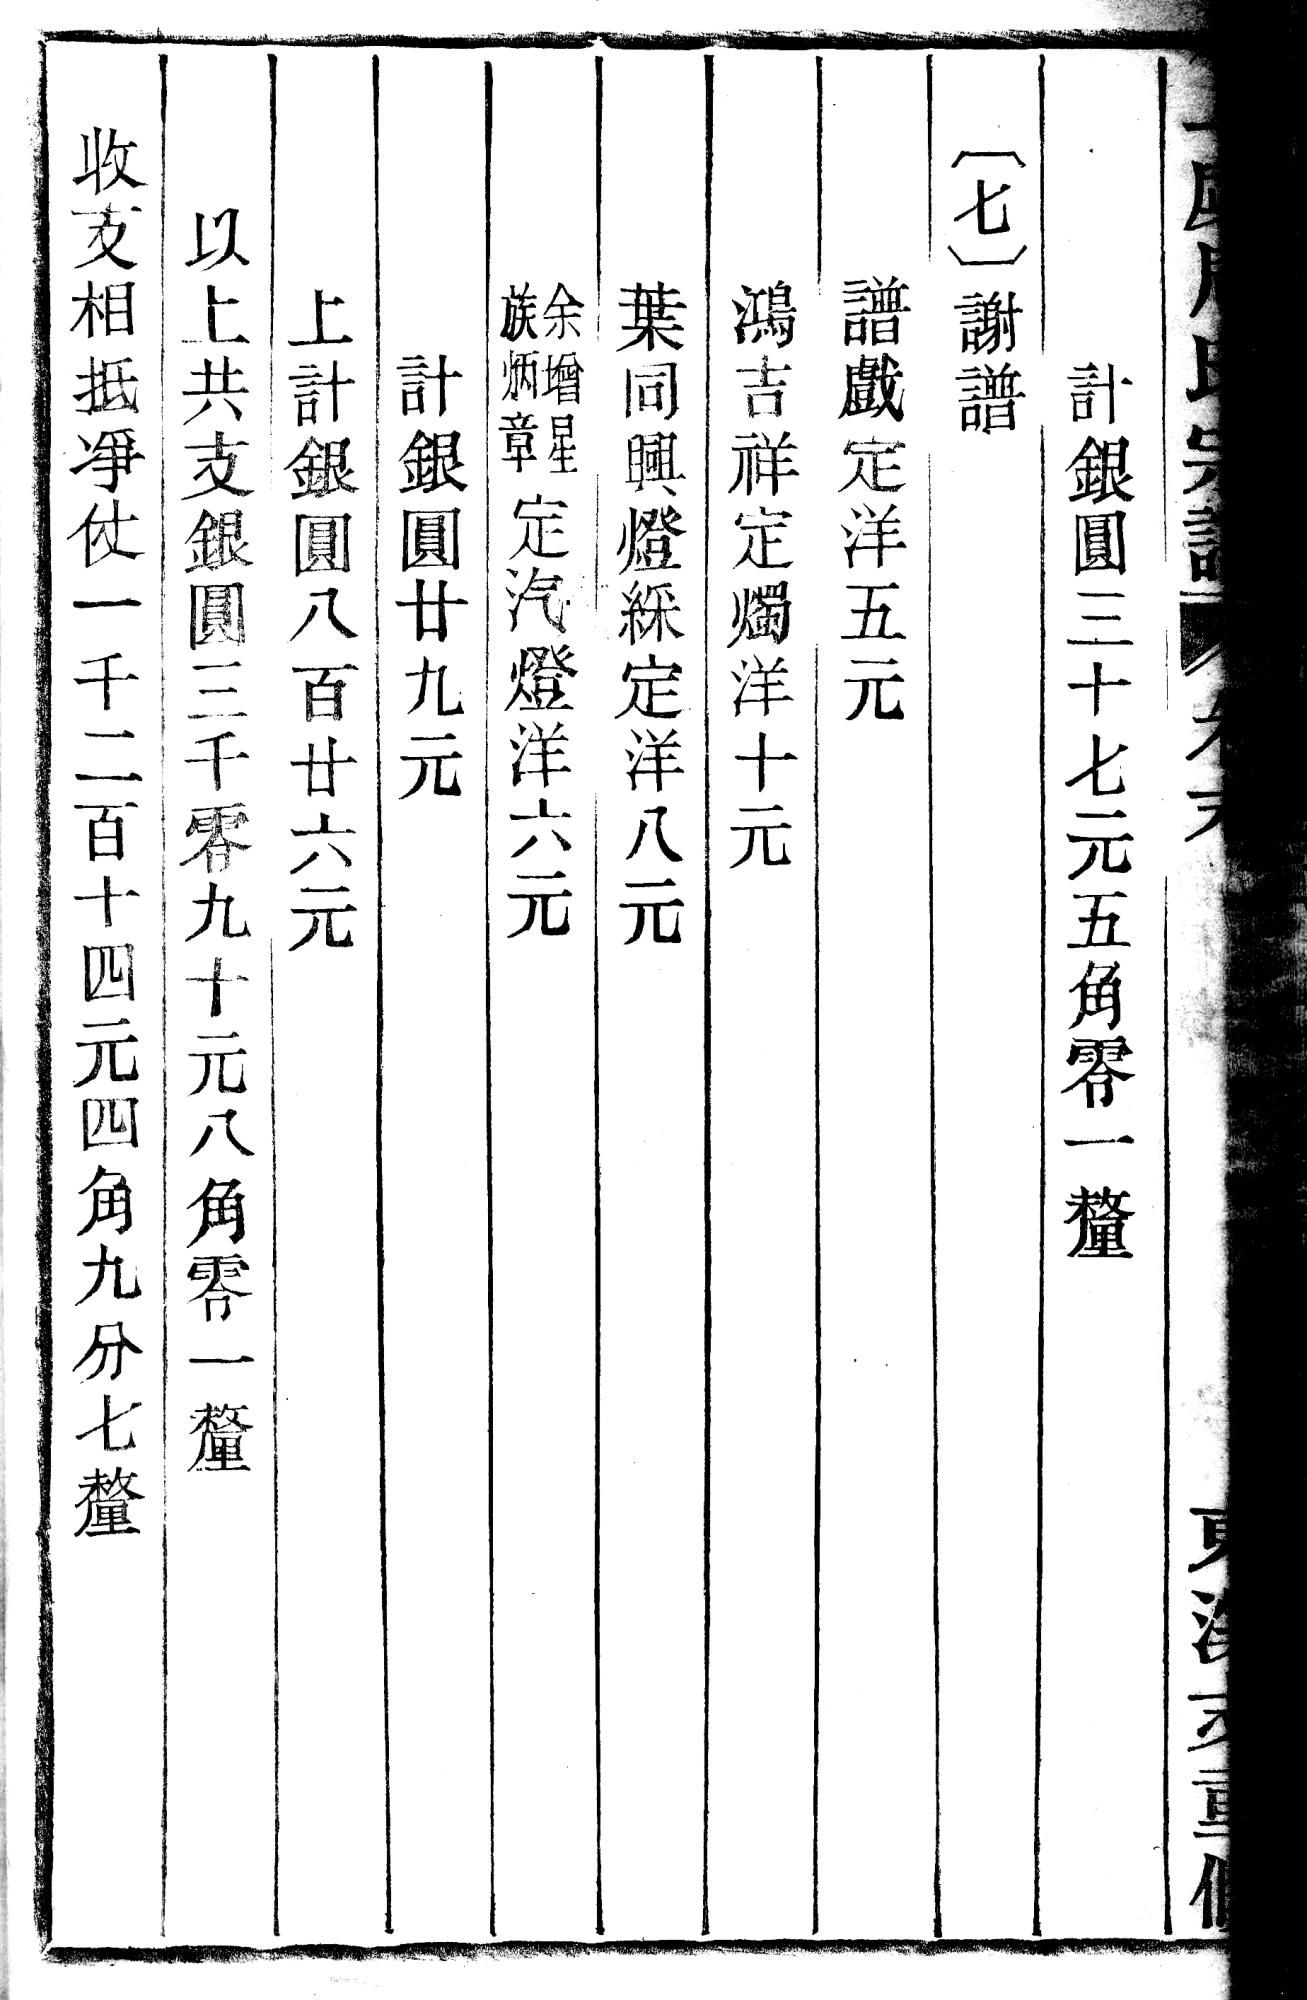 計銀圓三十七元五角零一釐
〔七〕謝譜
譜戲定洋五元
鴻吉祥定燭洋十元
葉同興燈綵定洋八元
余增星
族炳章
定汽燈洋六元
計銀圓廿九元
上計銀圓八百廿六元
以上共支銀圓三千零九十元八角零一釐
收支相抵凈仗一千二百十四元四角九分七釐